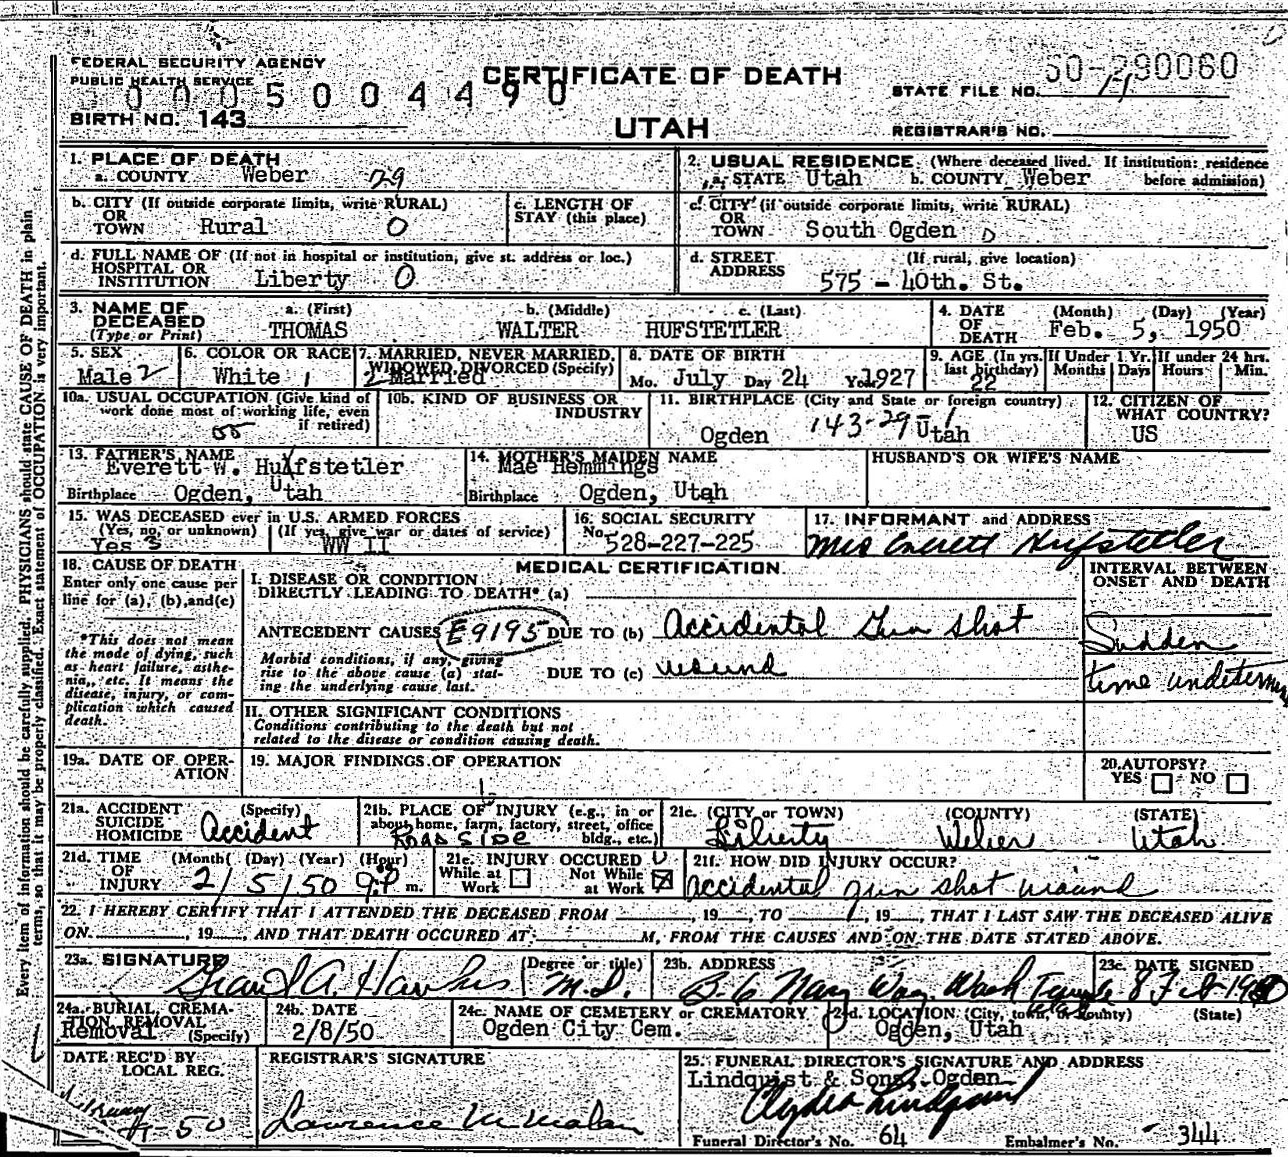 FEDERAL SECURITY AGENCY
PUBLIC HEALTH SERVICE
CERTIFICATE OF DEATH
50-290060
0 0 0 5 0 0 4 4 9 0
STATE FILE NO. 11
BIRTH NO. 143
UTAH
REGISTRAR'S NO.
1. PLACE OF DEATH
a. COUNTY Weber 29
2. USUAL RESIDENCE (Where deceased lived. If institution: residence before admission)
a. STATE Utah b. COUNTY Weber
b. CITY (If outside corporate limits, write RURAL)
OR
TOWN Rural 0
c. LENGTH OF
STAY (this place)
c. CITY (if outside corporate limits, write RURAL)
OR
TOWN South Ogden
d. FULL NAME OF (If not in hospital or institution, give st. address or loc.)
HOSPITAL OR
INSTITUTION Liberty 0
d. STREET (If rural, give location)
ADDRESS 575 - 40th. St.
3. NAME OF DECEASED
(Type or Print)
a. (First) b. (Middle) c. (Last)
THOMAS WALTER HUFSTETLER
4. DATE OF DEATH (Month) (Day) (Year)
Feb. 5, 1950
5. SEX
Male 2
6. COLOR OR RACE
White 1
7. MARRIED, NEVER MARRIED,
WIDOWED, DIVORCED (Specify)
2 Married
8. DATE OF BIRTH
Mo. July Day 24 Year 1927
9. AGE (In yrs. last birthday)
22
If Under 1 Yr.
Months Days
If under 24 hrs.
Hours Min.
10a. USUAL OCCUPATION (Give kind of
work done most of working life, even
if retired)
10b. KIND OF BUSINESS OR
INDUSTRY
11. BIRTHPLACE (City and State or foreign country)
Ogden 143-29 Utah
12. CITIZEN OF
WHAT COUNTRY?
US
13. FATHER'S NAME
Everett W. Hufstetler
Birthplace Ogden, Utah
14. MOTHER'S MAIDEN NAME
Mae Hemmings
Birthplace Ogden, Utah
HUSBAND'S OR WIFE'S NAME
15. WAS DECEASED ever in U.S. ARMED FORCES
(Yes, no, or unknown) (If yes, give war or dates of service)
Yes WW II
16. SOCIAL SECURITY
No. 528-227-225
17. INFORMANT and ADDRESS
Mrs Everett Hufstetler
18. CAUSE OF DEATH
Enter only one cause per
line for (a), (b), and (c)
*This does not mean
the mode of dying, such
as heart failure, asthe-
nia, etc. It means the
disease, injury, or com-
plication which caused
death.
MEDICAL CERTIFICATION
INTERVAL BETWEEN
ONSET AND DEATH
I. DISEASE OR CONDITION
DIRECTLY LEADING TO DEATH* (a)
ANTECEDENT CAUSES E9195 DUE TO (b) Accidental Gun shot
Sudden
Morbid conditions, if any, giving
rise to the above cause (a) stat-
ing the underlying cause last.
DUE TO (c) wound
time undeterm
II. OTHER SIGNIFICANT CONDITIONS
Conditions contributing to the death but not
related to the disease or condition causing death.
19a. DATE OF OPER-
ATION
19. MAJOR FINDINGS OF OPERATION
20. AUTOPSY?
YES NO
21a. ACCIDENT (Specify)
SUICIDE
HOMICIDE Accident
21b. PLACE OF INJURY (e.g., in or
about home, farm, factory, street, office
bldg., etc.)
ROAD SIDE
21c. (CITY or TOWN) (COUNTY) (STATE)
Liberty Weber Utah
21d. TIME (Month) (Day) (Year) (Hour)
OF
INJURY 2/5/50 9:P m.
21e. INJURY OCCURED
While at Work
Not While at Work
21f. HOW DID INJURY OCCUR?
Accidental gun shot wound
22. I HEREBY CERTIFY THAT I ATTENDED THE DECEASED FROM , 19 , TO , 19 , THAT I LAST SAW THE DECEASED ALIVE
ON , 19 , AND THAT DEATH OCCURED AT M, FROM THE CAUSES AND ON THE DATE STATED ABOVE.
23a. SIGNATURE (Degree or title)
Grant A. Hawkes M.D.
23b. ADDRESS
B-6 Navy Way Wash Terrace
23c. DATE SIGNED
8 Feb 1950
24a. BURIAL, CREMA-
TION REMOVAL
(Specify)
Removal
24b. DATE
2/8/50
24c. NAME OF CEMETERY or CREMATORY
Ogden City Cem.
24d. LOCATION (City, town, or county) (State)
Ogden, Utah
DATE REC'D BY
LOCAL REG.
REGISTRAR'S SIGNATURE
Lawrence M. Malan
25. FUNERAL DIRECTOR'S SIGNATURE AND ADDRESS
Lindquist & Sons, Ogden
Clyde Lindquist
Funeral Director's No. 64 Embalmer's No. 344
Every item of information should be carefully supplied. PHYSICIANS should state CAUSE OF DEATH in plain
terms, so that it may be properly classified. Exact statement of OCCUPATION is very important.